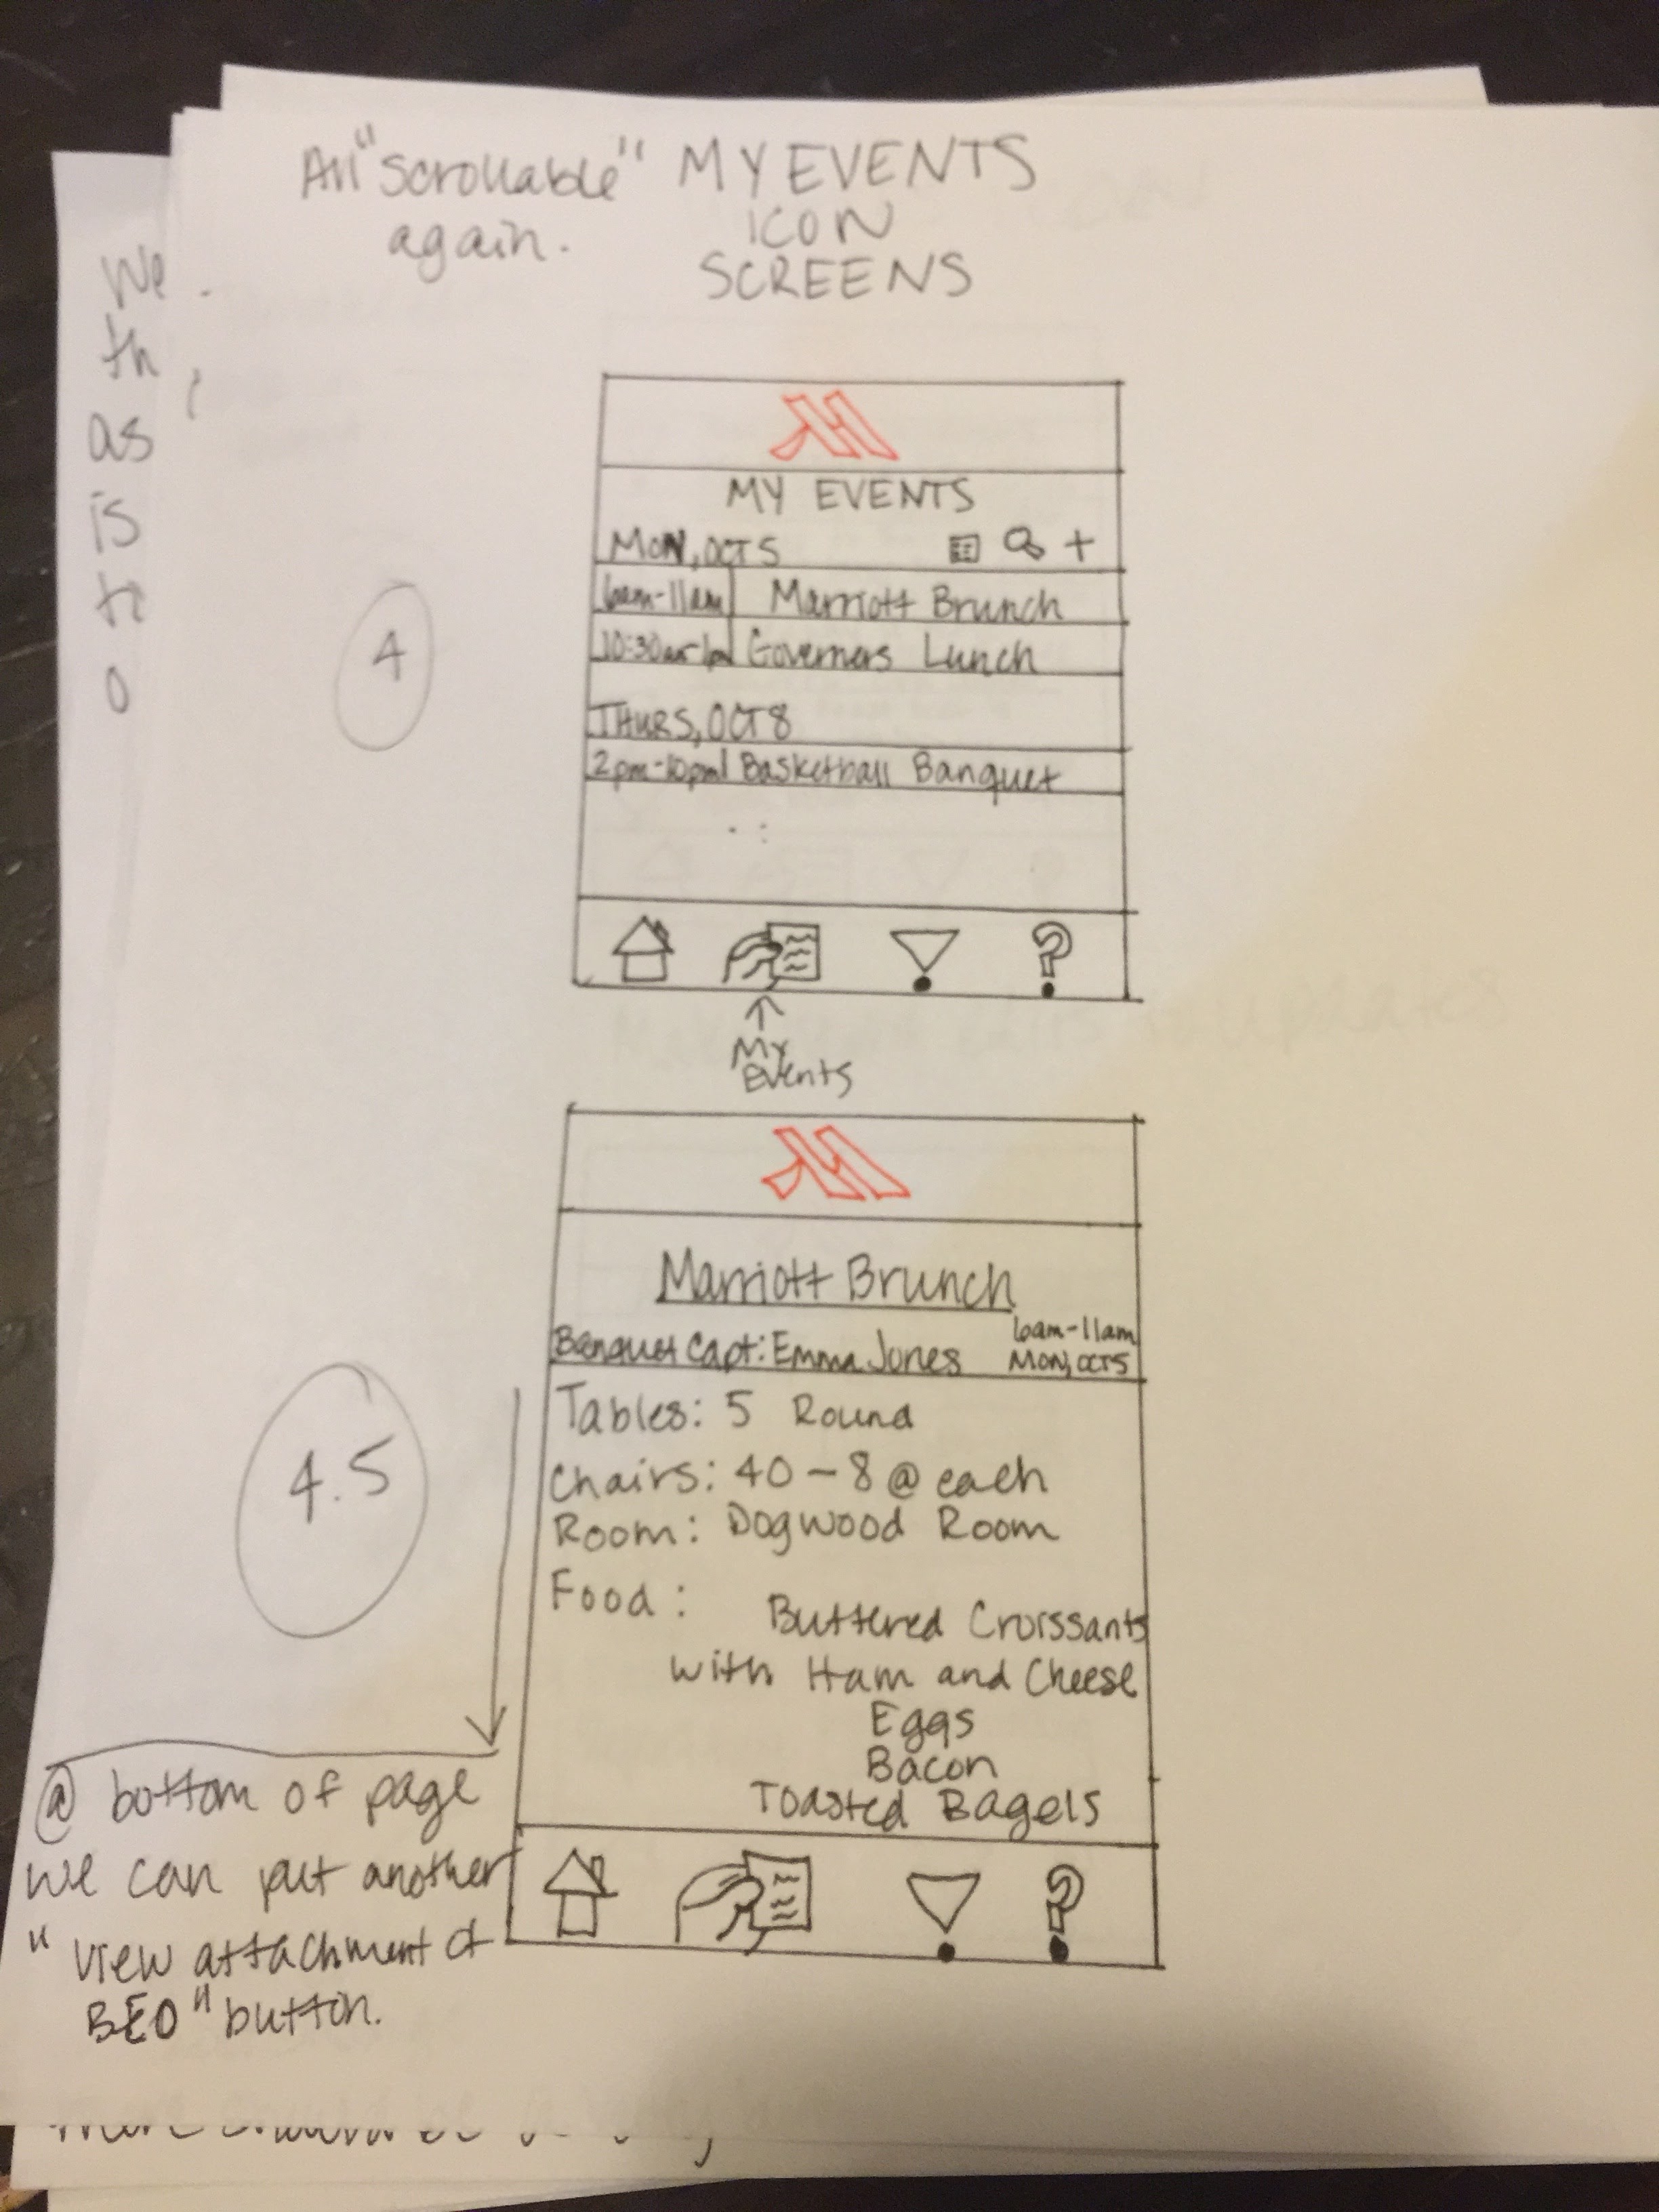 All "scrollable"
again.
MY EVENTS
ICON
SCREENS
We
th
as
is
to
4
MY EVENTS
MON, OCT 5 +
6am-11am Marriott Brunch
10:30am-1pm Governers Lunch
THURS, OCT 8
2pm-10pm Basketball Banquet
?
My
Events
4.5
Marriott Brunch
Banquet Capt: Emma Jones
6am-11am
MON, OCT 5
Tables: 5 Round
Chairs: 40 - 8 @ each
Room: Dogwood Room
Food:
Buttered Croissants
with Ham and Cheese
Eggs
Bacon
Toasted Bagels
?
@ bottom of page
we can put another
"view attachment of
BEO" button.